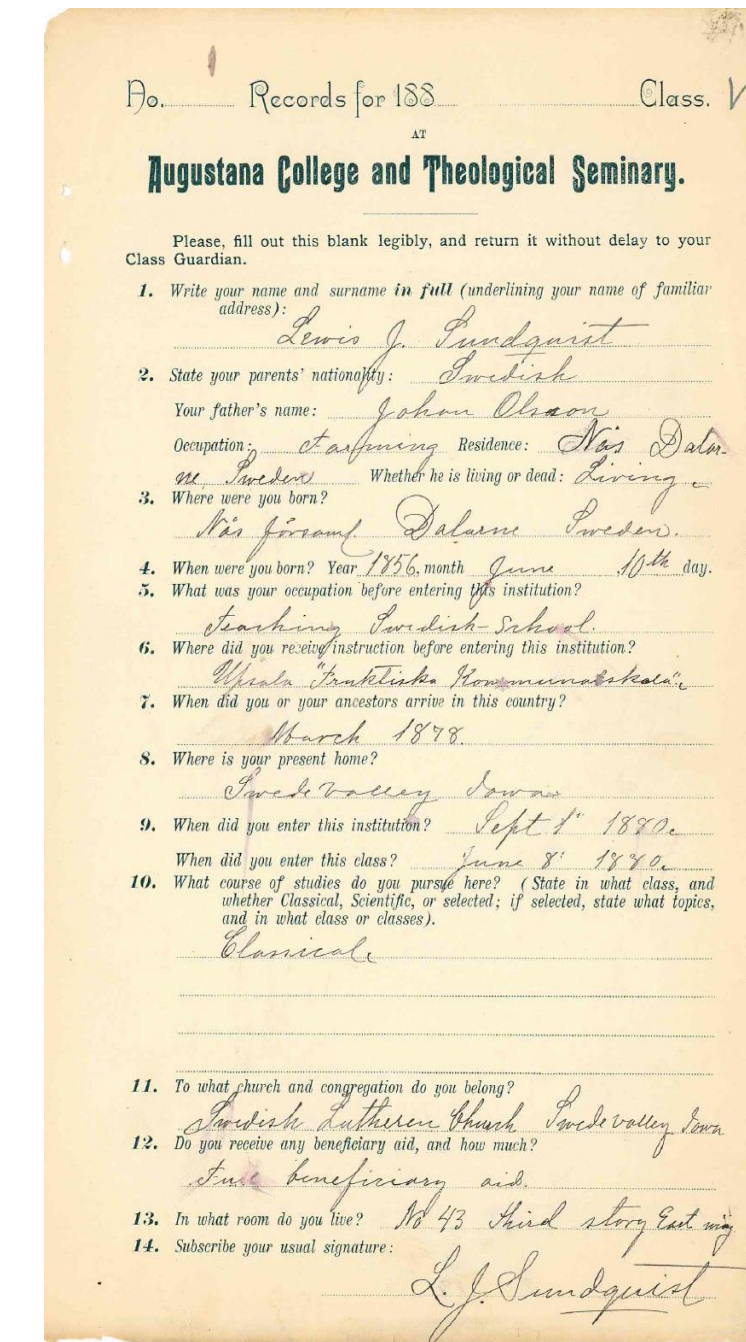 No. Records for 188 Class. V
AT
Augustana College and Theological Seminary.
Please, fill out this blank legibly, and return it without delay to your
Class Guardian.
1. Write your name and surname in full (underlining your name of familiar
address):
Lewis J. Sundquist
2. State your parents' nationality: Swedish
Your father's name: Johan Olsson
Occupation: Farming Residence: Nås Dalar-
ne, Sweden Whether he is living or dead: Living.
3. Where were you born?
Nås församl. Dalarne Sweden.
4. When were you born? Year 1856, month June 10th day.
5. What was your occupation before entering this institution?
Teaching Swedish-School.
6. Where did you receive instruction before entering this institution?
Upsala "Fruktliska Kommunalskola".
7. When did you or your ancestors arrive in this country?
March 1878.
8. Where is your present home?
Swede valley Iowa
9. When did you enter this institution? Sept 1st 1880.
When did you enter this class? June 8' 1880.
10. What course of studies do you pursue here? (State in what class, and
whether Classical, Scientific, or selected; if selected, state what topics,
and in what class or classes).
Classical.
11. To what church and congregation do you belong?
Swedish Lutheren Church Swede valley Iowa
12. Do you receive any beneficiary aid, and how much?
Full beneficiary aid.
13. In what room do you live? No 43 third story East wing
14. Subscribe your usual signature:
L. J. Sundquist